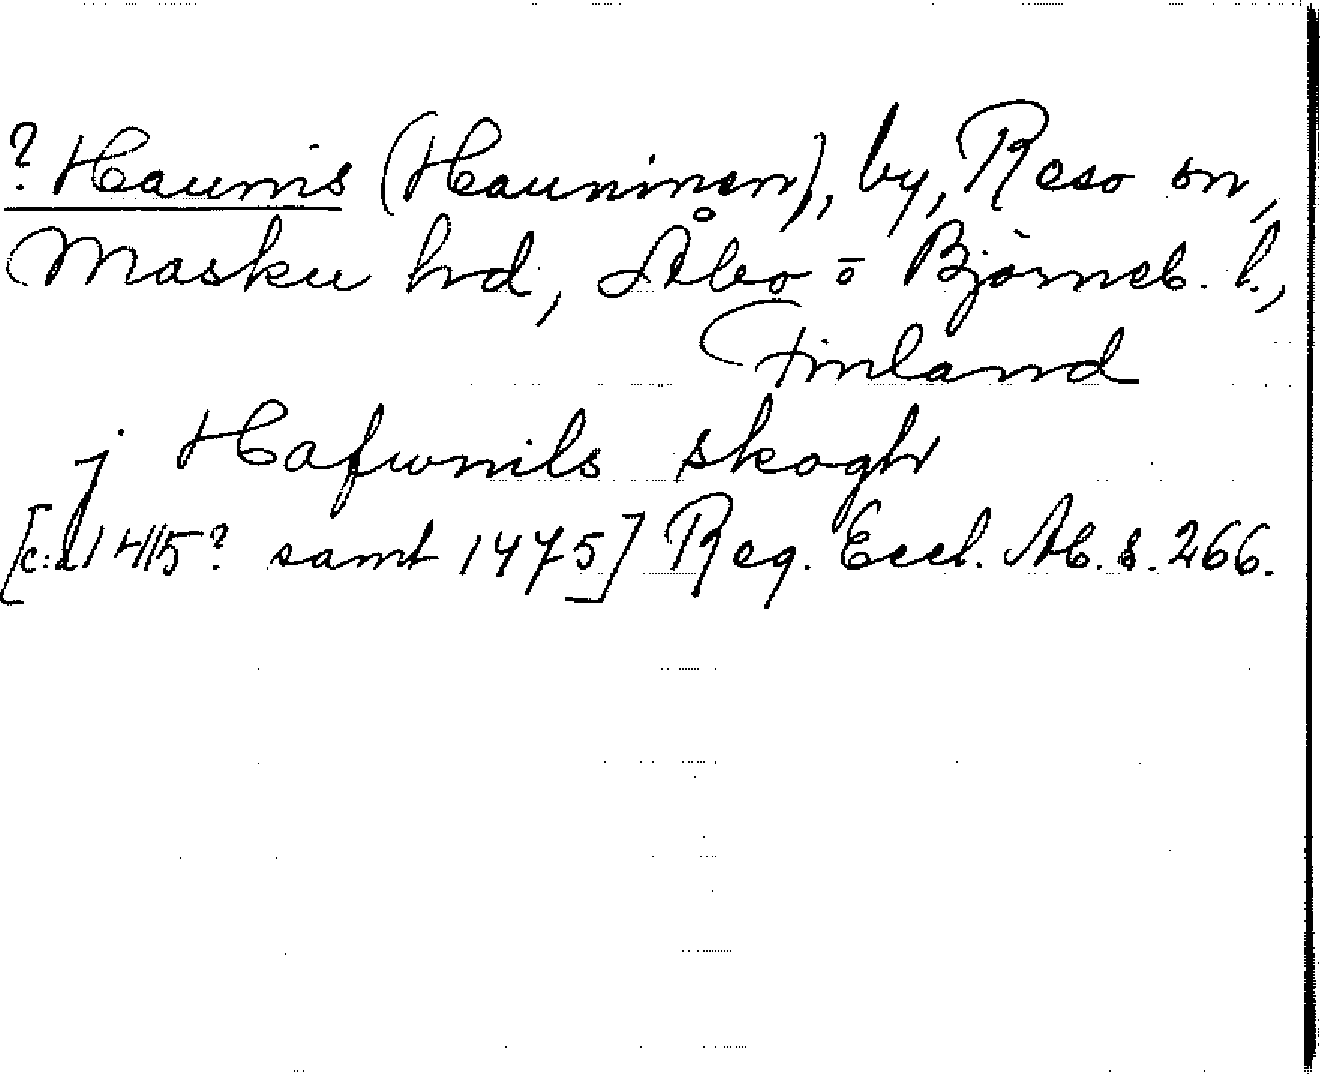 ? Haunis (Hauninen), by, Reso sn,
Masku hrd, Åbo o Björneb. l.,
Finland
j Hafwnils skogh
[c:a 1415? samt 1475] Reg. Eccl. Ab. s. 266.